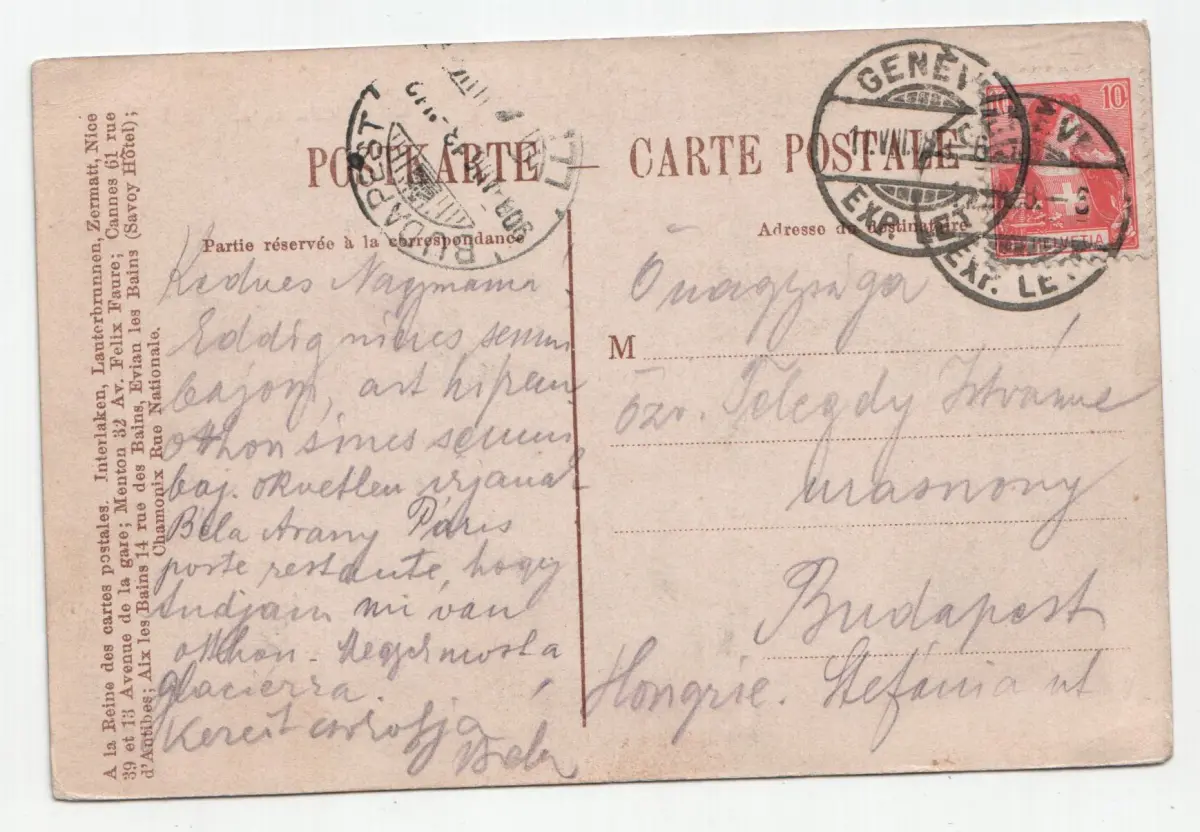 POSTKARTE — CARTE POSTALE
Partie réservée à la correspondance
Adresse du destinataire
Kedves Nagymama!
Eddig nincs semmi
bajom, azt hiszem
otthon sincs semmi
baj. Okvetlen írjanak
Béla Arany Páris
poste restante, hogy
tudjam mi van
otthon. Megyünk most a
glacierra.
Kezeit csókolja
Béla
Őnagysága
M
Özv. Telegdy Istvánné
úrasszony
Budapest
Hongrie. Stefánia út
A la Reine des cartes postales. Interlaken, Lauterbrunnen, Zermatt, Nice
39 et 13 Avenue de la gare; Menton 32 Av. Felix Faure; Cannes 61 rue
d'Antibes; Aix les Bains 14 rue des Bains, Evian les Bains (Savoy Hôtel);
Chamonix Rue Nationale.
BUDAPEST
GENÈVE
EXP. LET.
EXP. LET.
10
10
HELVETIA